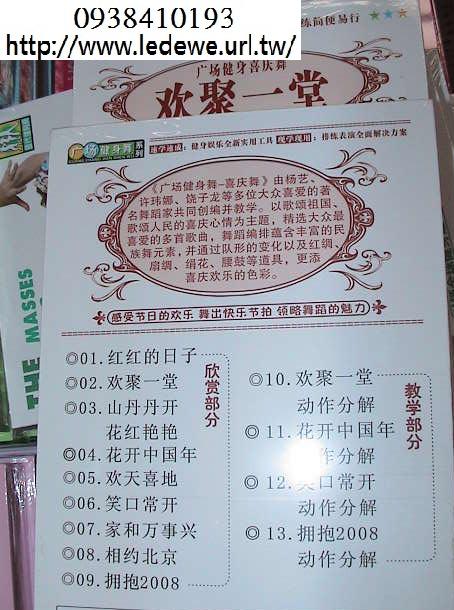 0938410193
http://www.ledewe.url.tw/
练简便易行
广场健身喜庆舞
欢聚一堂
广场健身舞系列
速学速成：健身娱乐全新实用工具 现学现用：排练表演全面解决方案
《广场健身舞-喜庆舞》由杨艺、
许玮娜、饶子龙等多位大众喜爱的著
名舞蹈家共同创编并教学。以歌颂祖国、
歌颂人民的喜庆心情为主题，精选大众最
喜爱的多首歌曲，舞蹈编排蕴含丰富的民
族舞元素，并通过队形的变化以及红绸、
扇绸、绢花、腰鼓等道具，更添
喜庆欢乐的色彩。
感受节日的欢乐 舞出快乐节拍 领略舞蹈的魅力
◎01. 红红的日子
◎02. 欢聚一堂
◎03. 山丹丹开
花红艳艳
◎04. 花开中国年
◎05. 欢天喜地
◎06. 笑口常开
◎07. 家和万事兴
◎08. 相约北京
◎09. 拥抱2008
欣赏部分
◎10. 欢聚一堂
动作分解
◎11. 花开中国年
作分解
◎12. 笑口常开
动作分解
◎13. 拥抱2008
动作分解
教学部分
THE MASSES